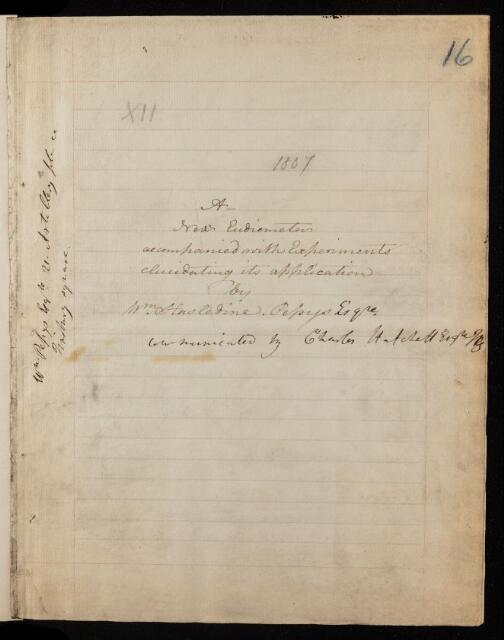 16
XII
1807
A
New Eudiometer
accompanied with Experiments
elucidating its application
by
Wm. Hasledine Pepys Esqre.
communicated by Charles Hatchett Esqre
Wm Pepys Esq to 24 Artillery place
Finsbury square